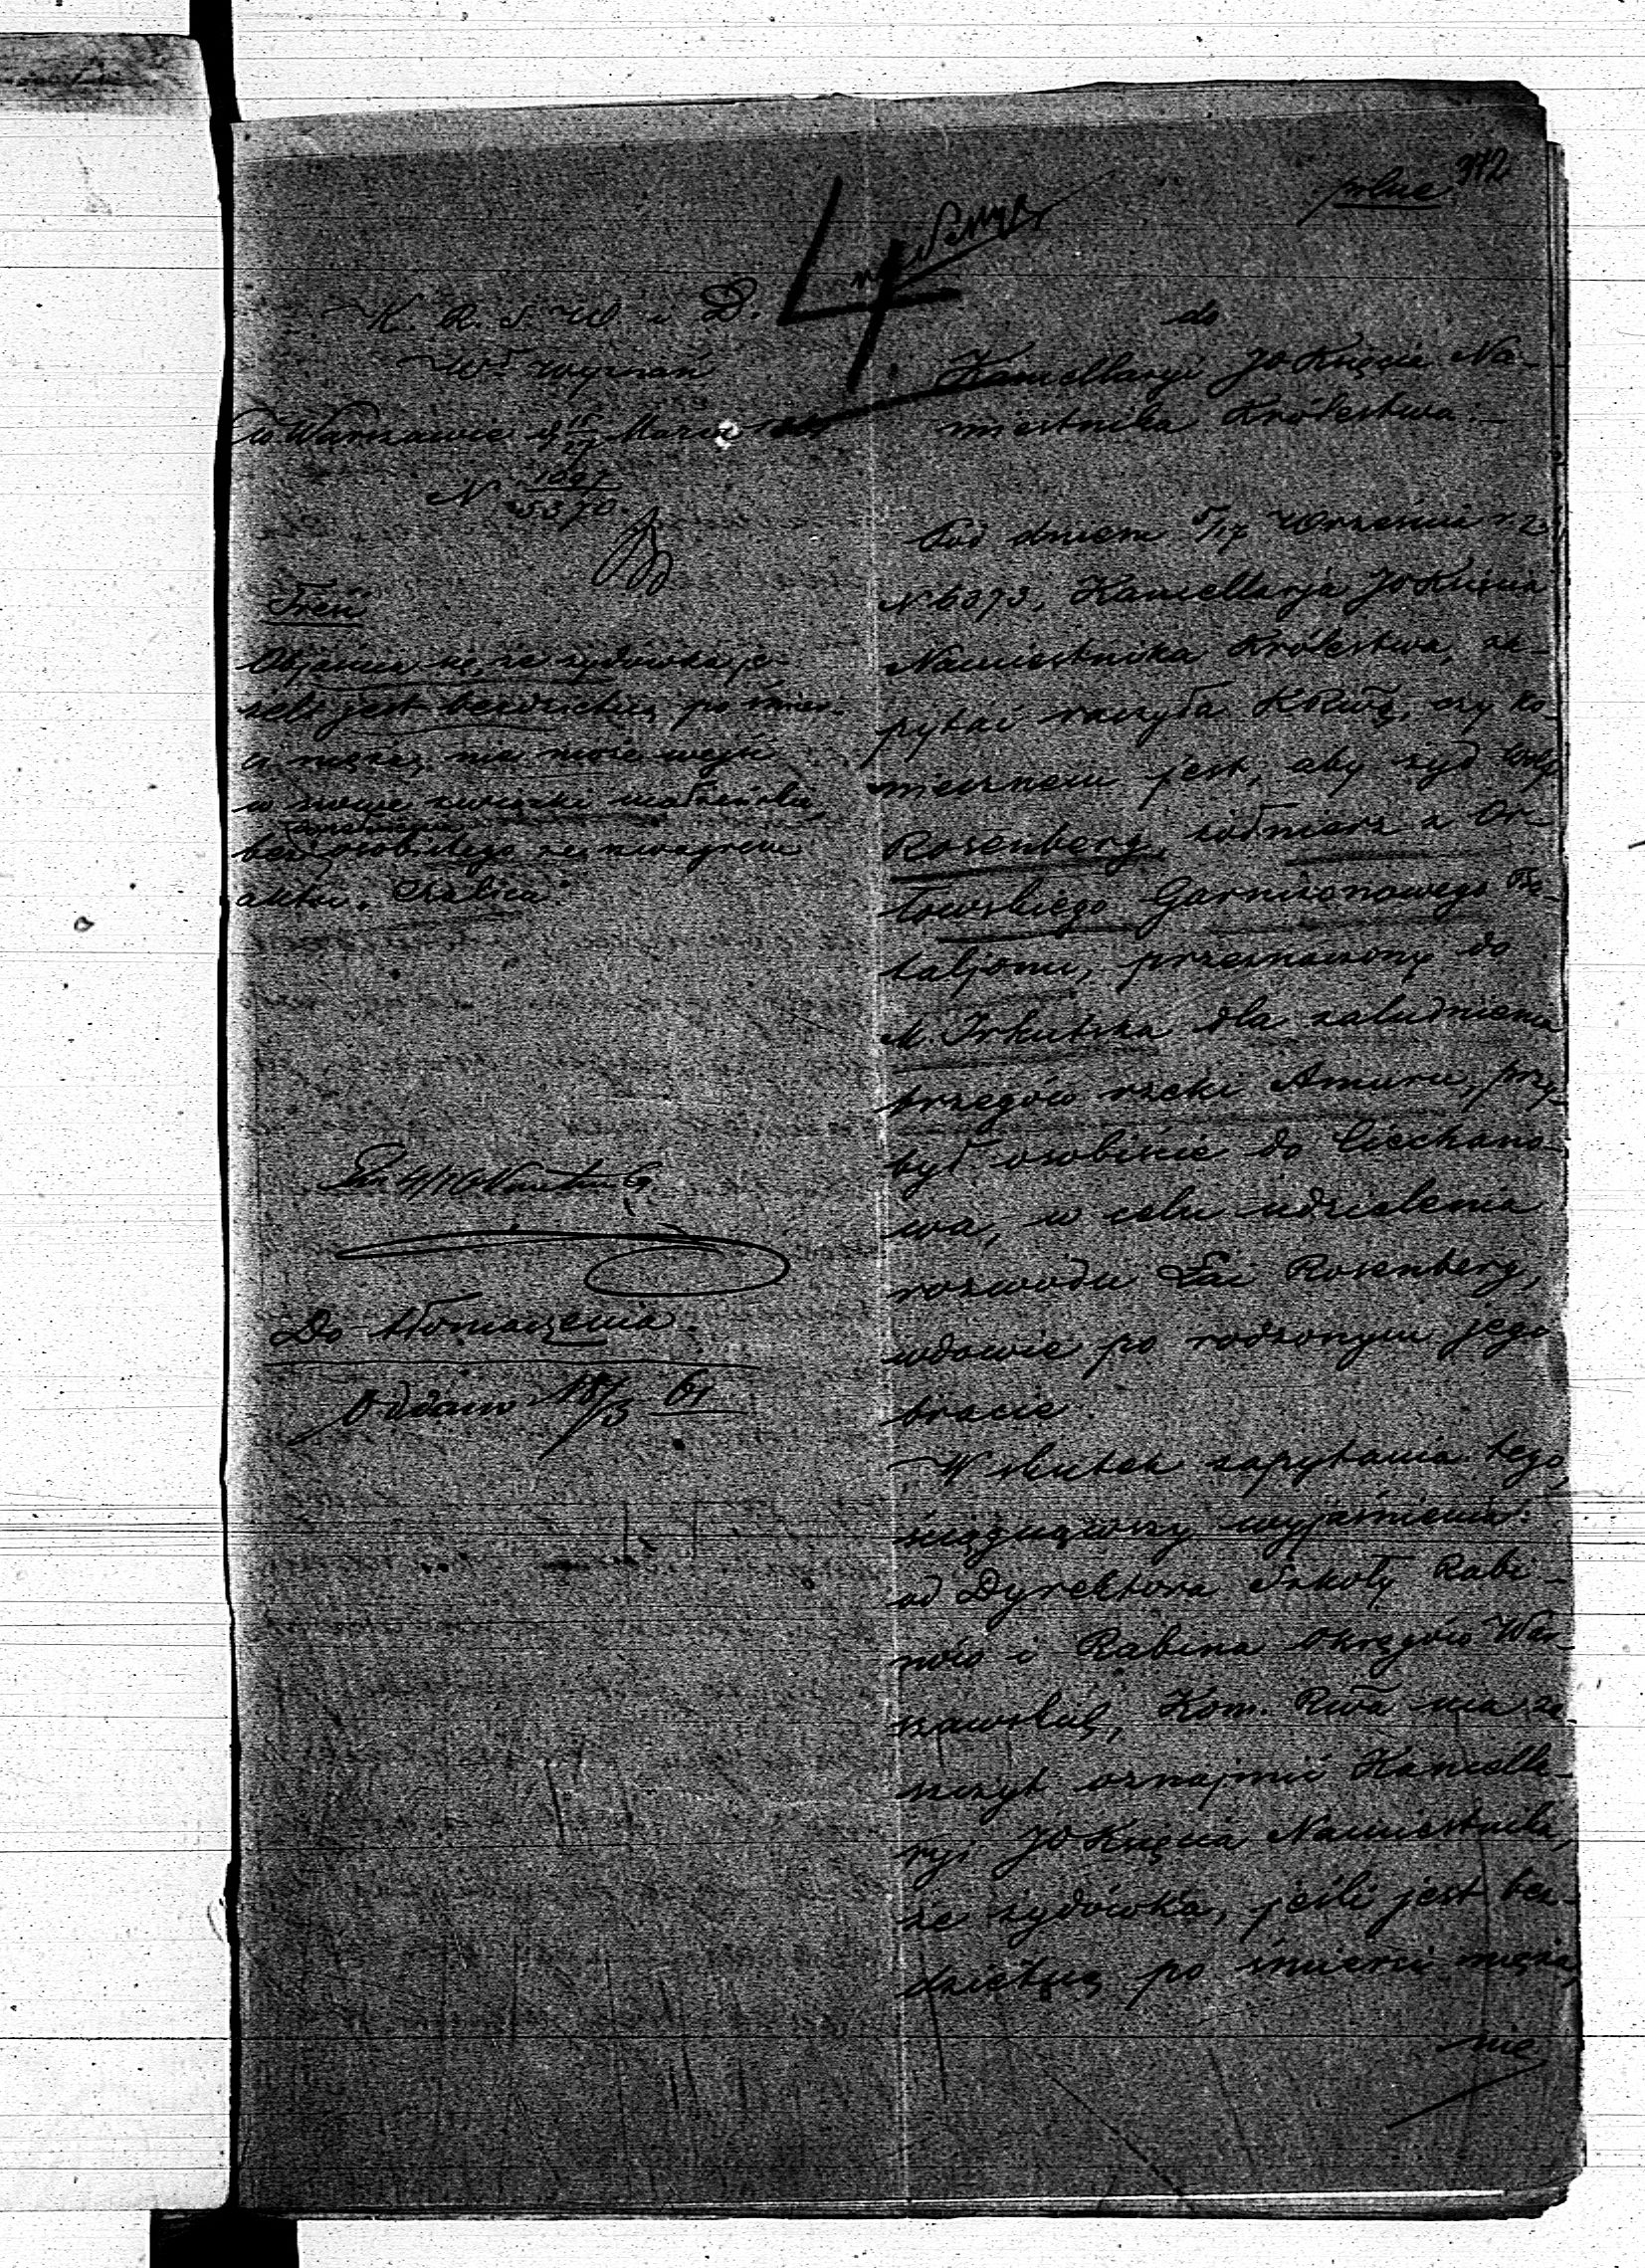 pilne 372
K. R. S. W. i D.
Wł Wyznań
w Warszawie d 15/27 Marca
N 1097/5370.
Treść
Objaśnia się, że żydówka je-
żeli jest bezdzietną po śmier-
ci męża, nie może wejść
w nowe związki małżeńskie,
bez osobistego zeznania
aktu "Chalica"
Do tłomaczenia.
Oddano 18/3 61
do
Kancellaryi JO Księcia Na-
miestnika Królestwa.
Pod dniem 5/17 Września r z.
N 6073, Kancellarja JO Księcia
Namiestnika Królestwa, za-
pytać raczyła KRwą, czy ko-
niecznem jest, aby żyd
Rosenberg, żołnierz z Or-
łowskiego Garnizonowego Ba-
taljonu, przeznaczony do
M. Irkutska dla zaludnienia
brzegów rzeki Amuru, przy-
był osobiście do Ciechano-
wa, w celu udzielenia
rozwodu Łai Rosenberg,
wdowie po rodzonym jego
bracie.
W skutek zapytania tego,
zasięgnąwszy wyjaśnienia
od Dyrektora Szkoły Rabi-
nów i Rabina Okręgów War-
szawskich, Kom. Rwa ma za-
szczyt oznajmić Kancella-
ryi JO Księcia Namiestnika,
że żydówka, jeśli jest bez-
dzietną po śmierci męża,
nie